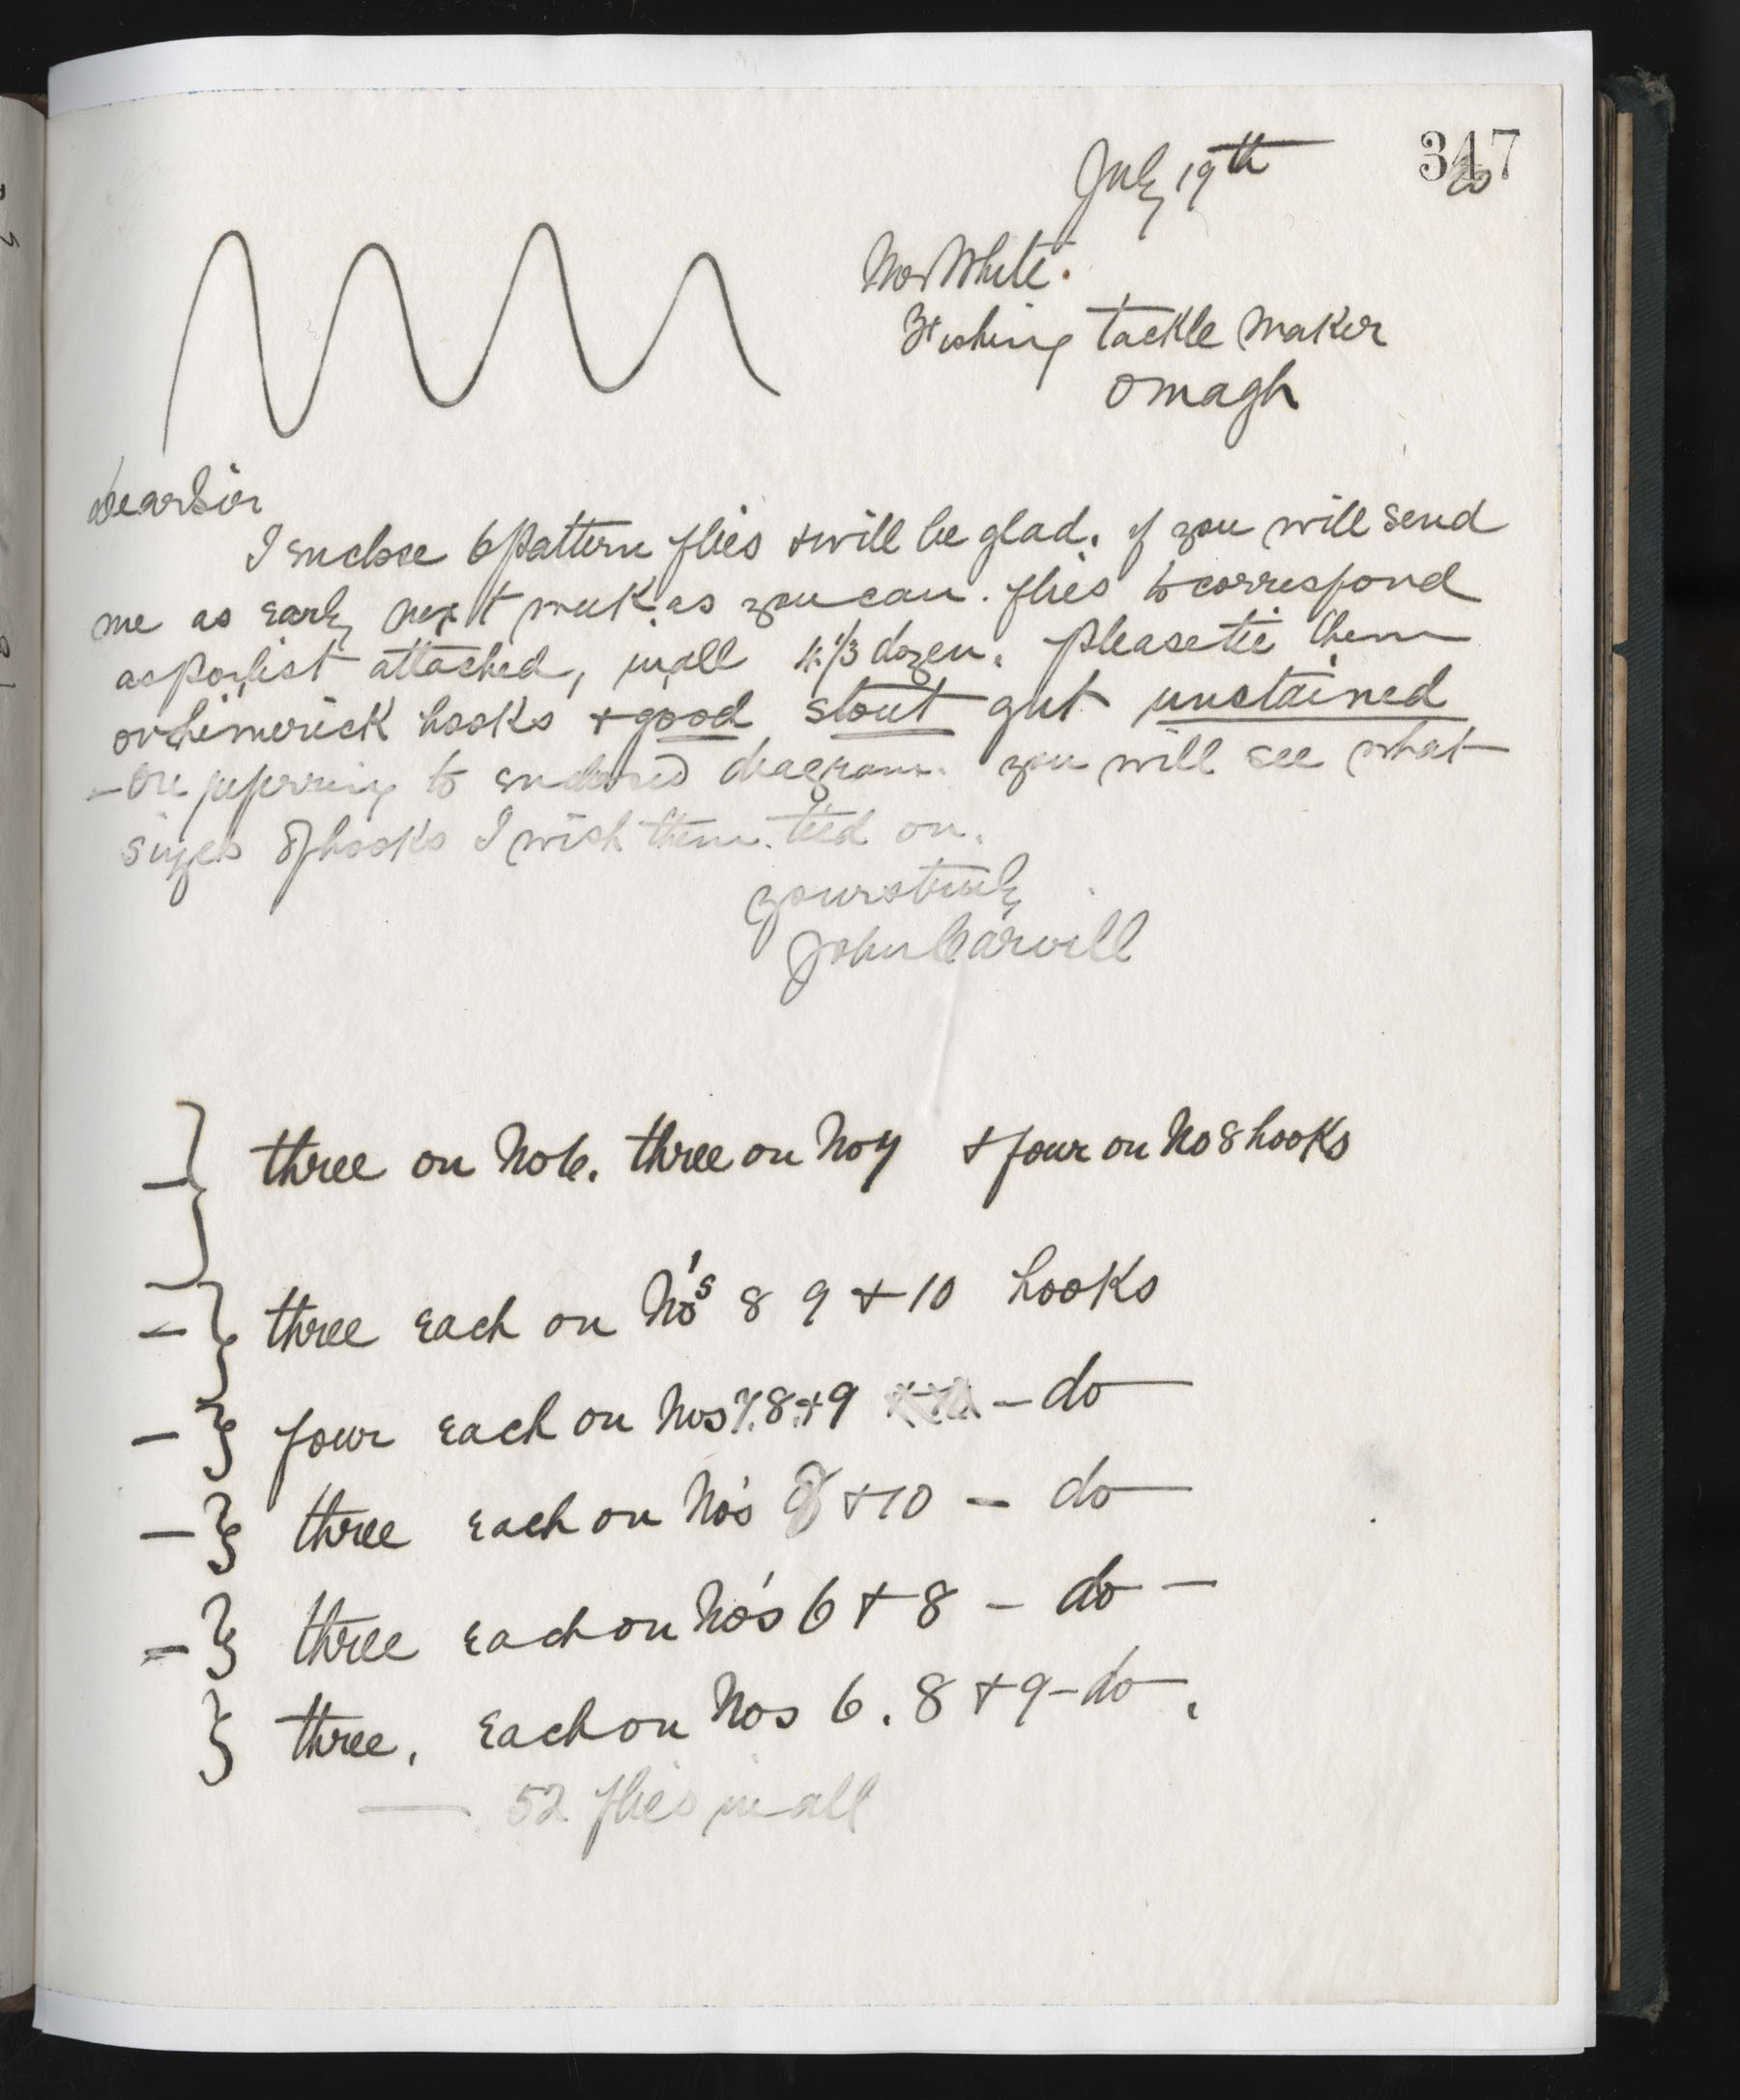 July 19th
347
80
Mr White.
Fishing tackle Maker
Omagh
Dear Sir
I enclose 6 pattern flies + will be glad. if you will send
me as early next week as you can. flies to correspond
as per list attached, in all 4 1/3 dozen. please tie them
on Limerick hooks + good stout gut unstained
- On referring to enclosed diagram. you will see what
sizes of hooks I wish them. tied on.
yours truly
John Carvill
three on No 6. three on No 7 + four on No 8 hooks
three each on No's 8 9 + 10 hooks
four each on Nos 7. 8. + 9 - do
three each on No's + 10 - do
three each on No's 6 + 8 - do -
three. each on Nos 6. 8 + 9 - do.
52 flies in all